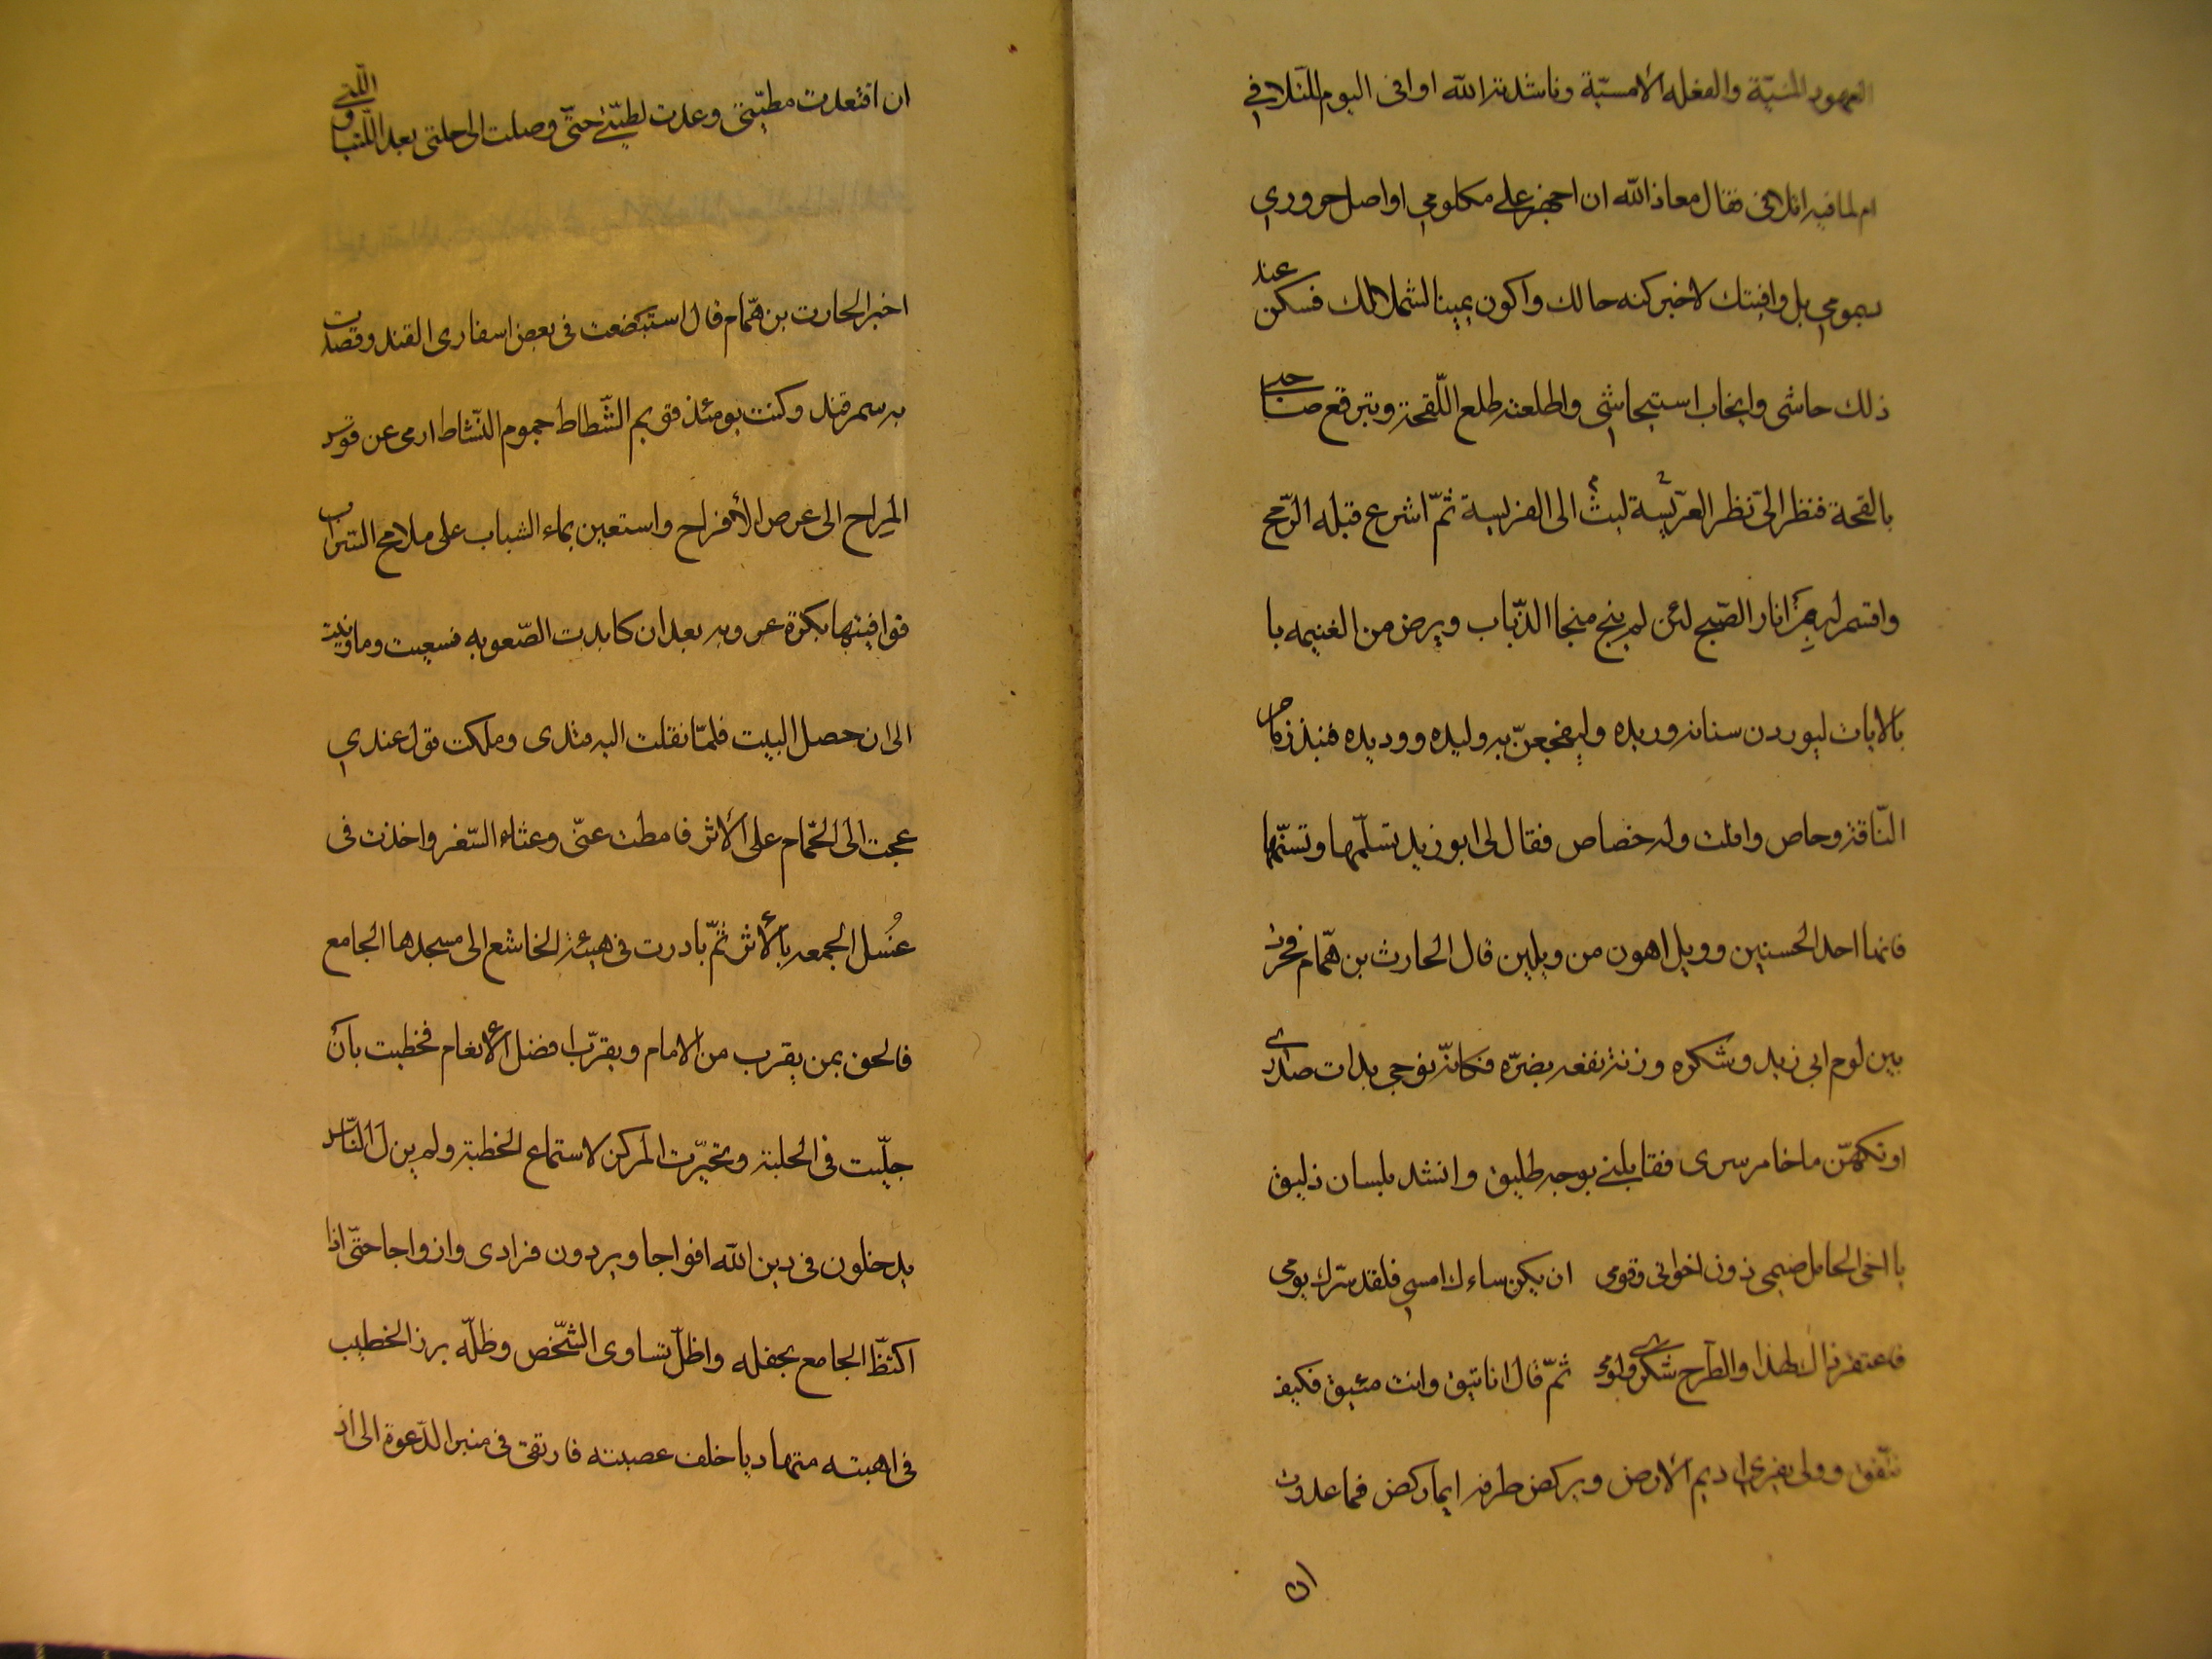 العهود المنسيّة والفعله الأمسيّة وناشدته الله اوافى اليوم للتّلافي
ام لما فيه اتلافى فقال معاذ الله ان اجهز على مكلومي او اصل حروري
بسمومي بل وافيتك لاخبر كنه حالك واكون يمينا لشمالك فسكن عند
ذلك حاشى وانجاب استيحاشي واطلعته طلع اللّقحة وتبرقع صاحبي
بالقحة فنظر الىّ نظر العرّيسة ليث الى الفريسة ثمّ اشرع قبله الرّمح
واقسم له بمن انار الصّبح لئن لم ينج منجا الذّباب ويرض من الغنيمه با
بالاياب ليوردن سنانه وريده وليفجعنّ به وليده ووديده فنبذ زمام
النّاقة وحاص وافلت وله خصاص فقال لى ابو زيد تسلّمها وتسنّمها
فانها احد الحسنيين وويل اهون من ويلين قال الحارث بن همّام فحرت
بين لوم ابى زيد وشكره وزنة نفعه بضرّه فكانّه نوجي بذات صدرى
او تكهّن ما خامر سرى فقابلنے بوجه طليق وانشد بلسان ذليق
يا اخى الحامل ضيمى دون اخوانى وقومى ان يكن ساءك امسي فلقد سّرك يومى
فاعتفر ذاك لهذا والطّرح شكرى ولومى ثمّ قال انا تيق وانت مئيق فكيف
نتّفق وولى يفرى اديم الأرض ويركض طرفه ايما ركض فما عدوت
ان
ان اقتعدت مطيّتى وعدت لطيّتے حتّى وصلت الى حلتى بعد اللّتيا والّتى
اخبر الحارث بن همّام قال استبضعت فى بعض اسفارى القند وقصدت
به سمرقند وكنت يومئذ قويم الشّطاط جموم النّشاط ارمى عن قوس
المِراح الى غرض الأفراح واستعين بماء الشباب على ملامح السّراب
فوافيتها بكرة عروبه بعد ان كابدت الصّعوبه فسعيت وما ونيت
الى ان حصل البيت فلمّا نقلت اليه قندى وملكت قول عندي
عجت الى الحّمام على الأثر فامطت عنّى وعثاء السّفر واخذت فى
غُسل الجمعه بالأثر ثمّ بادرت فى هيئة الخاشع الى مسجدها الجامع
فالحق بمن يقرب من الامام ويقرّب افضل الأنعام فحظيت بان
جلّيت فى الحلبة وتخيّرت المركز لاستماع الخطبة ولم يزل النّاس
يدخلون فى دين الله افواجا ويردون فرادى وازواجا حتّى اذا
اكتظّ الجامع بحفله واظلّ تساوى الشّخص وظلّه برز الخطيب
فى اهبته متهاديا خلف عصبته فارتقى فى منبر الدّعوة الى ان